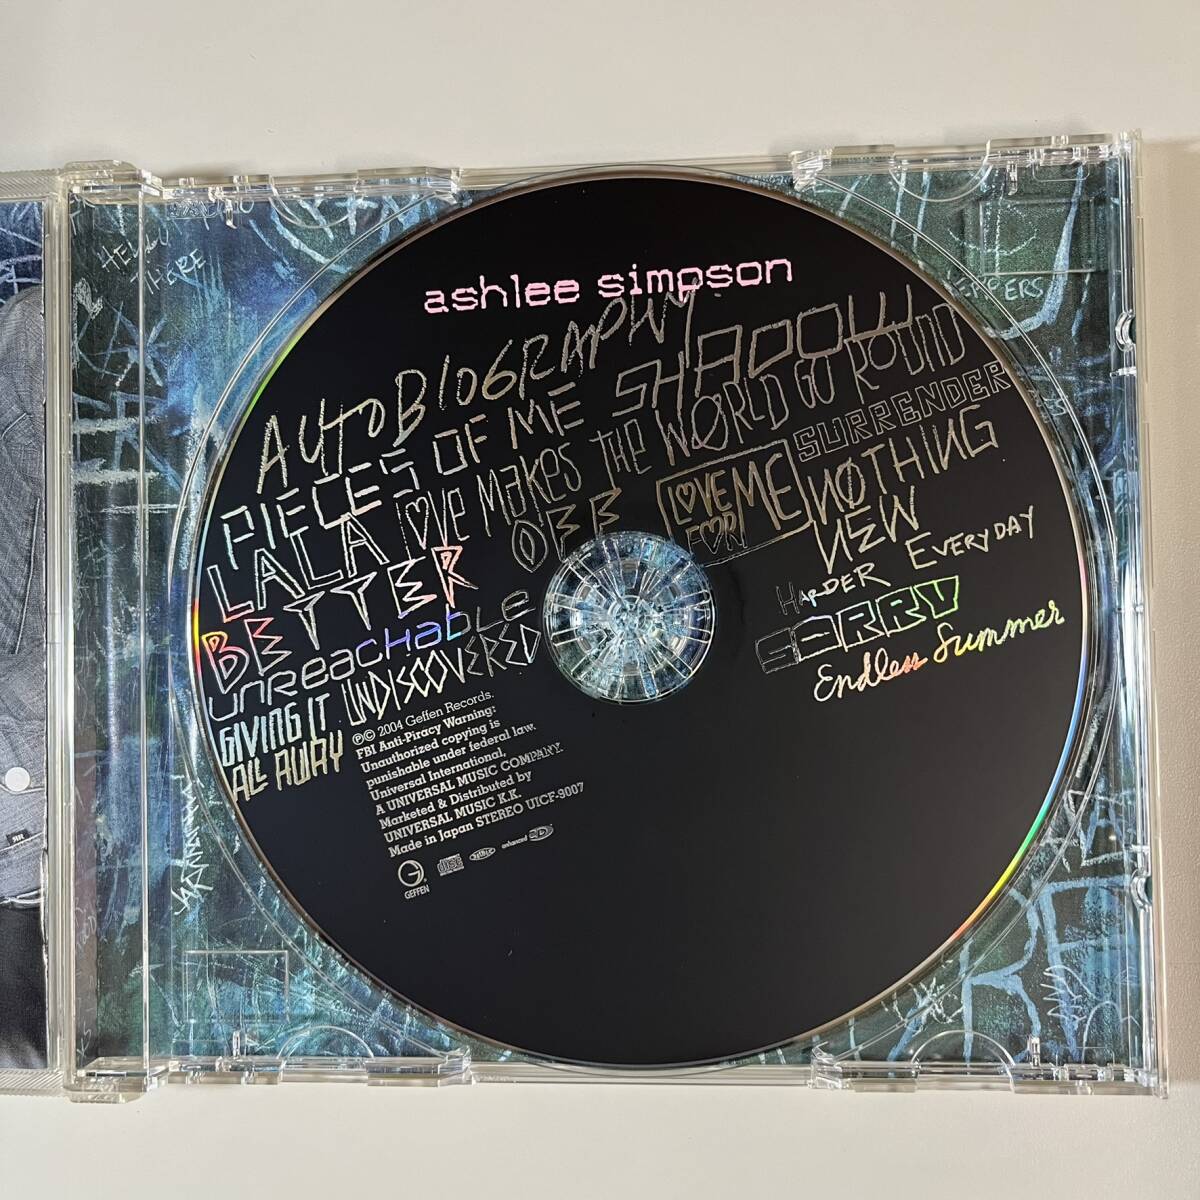 ashlee simpson
AUTOBIOGRAPHY
PIECES OF ME SHADOW
LALA LOVE MAKES THE WORLD GO ROUND
BETTER OFF LOVE ME FOR ME SURRENDER
UNREACHABLE NOTHING NEW
GIVING IT ALL AWAY UNDISCOVERED
HARDER EVERYDAY
SORRY
Endless Summer
℗© 2004 Geffen Records.
FBI Anti-Piracy Warning:
Unauthorized copying is
punishable under federal law.
Universal International,
A UNIVERSAL MUSIC COMPANY.
Marketed & Distributed by
UNIVERSAL MUSIC K.K.
Made in Japan STEREO UICF-9007
GEFFEN
enhanced CD
HELLO
THERE